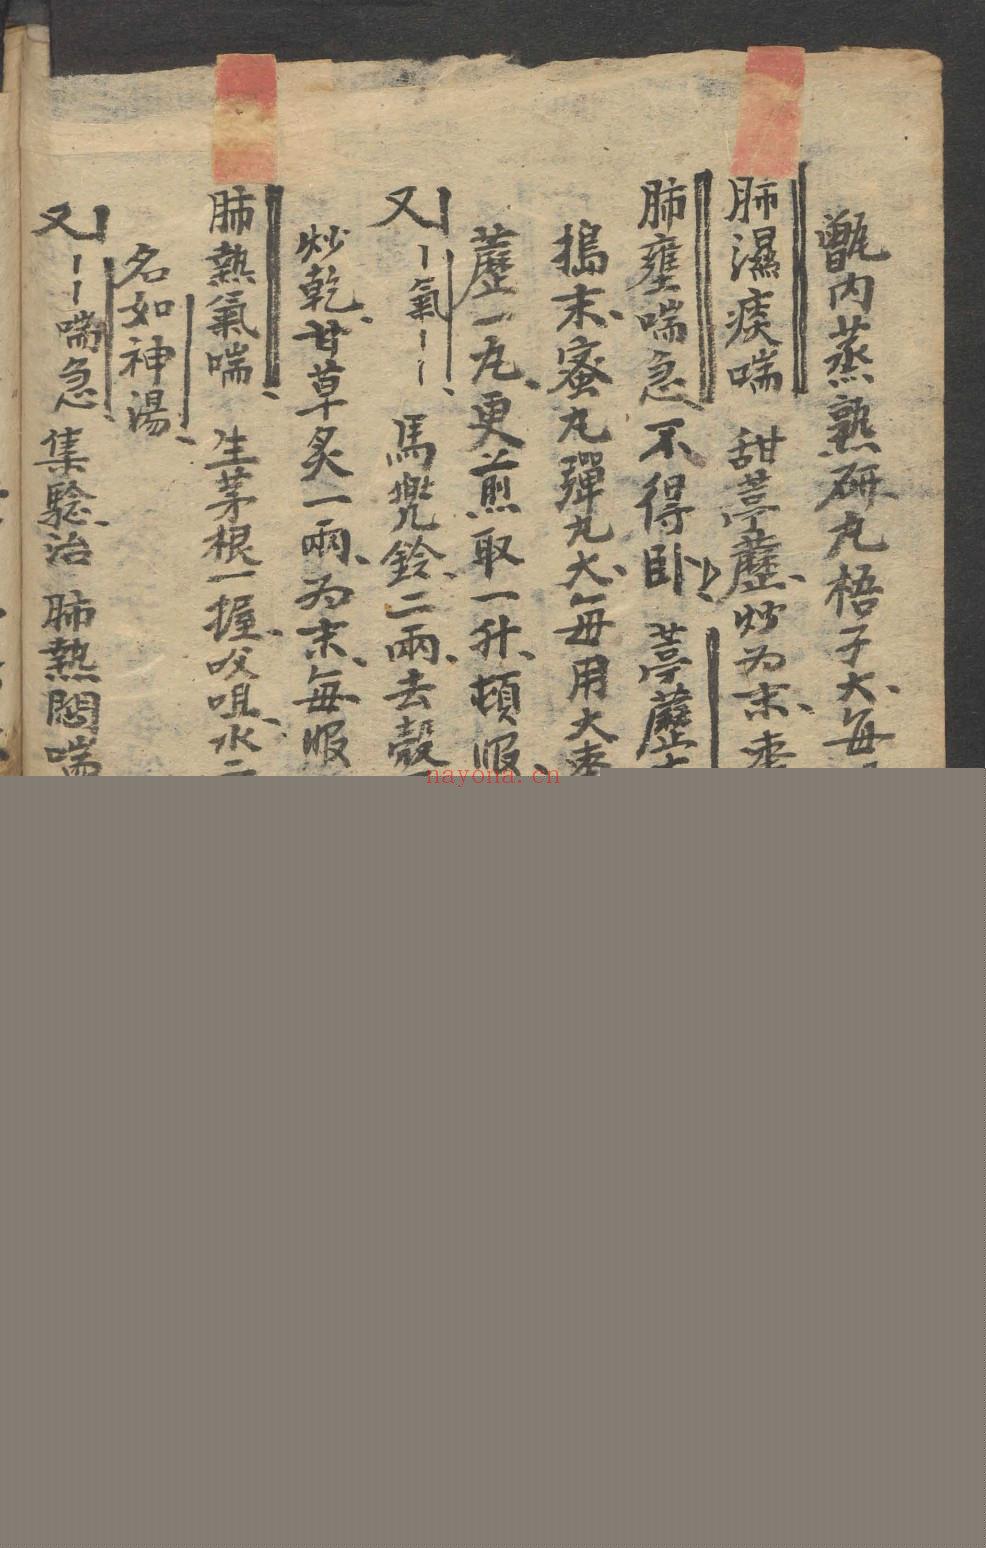 甑内蒸熟研丸梧子大每
肺濕痰喘 甜葶藶炒為末枣
肺壅喘急不得卧 葶藶
搗末蜜丸彈丸大每用大枣
藶一丸更煎取一升頓服
又〡氣〡〡 馬兜鈴二兩去殼
炒乾甘草炙一兩为末每服
肺熱氣喘 生茅根一握㕮咀水二
名如神湯
又〡〡喘急 集驗治肺熱悶喘
nayona.cn